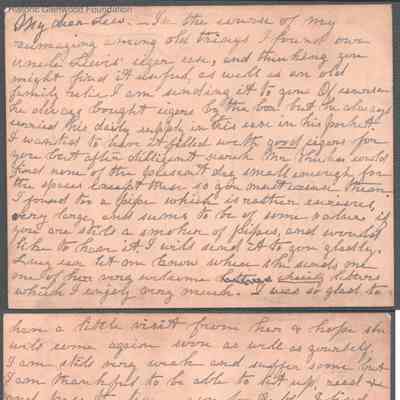 Historic Glenwood Foundation
My dear Lew. — In the course of my
rumaging among old things I found our
uncle Lewis' cigar case, and thinking you
might find it useful, as well as an old
family relic I am sending it to you. Of course
he always bought cigars by the box but he always
carried his daily supply in this case in his pocket.
I wanted to have it filled with good cigars for
you but after dilligent search Mr. could
find none of the present day small enough for
the spaces so you must excuse them.
I found too a pipe which is rather curious,
very large and seems to be of some value if
you are still a smoker of pipes, and would
like to have it I will send it to you gladly.
Lucy can let me know when she sends me
one of her very welcome letters cheery letters
which I enjoy very much. I was so glad to
have a little visit from her & hope she
will come again soon as well as yourself.
I am still very weak and suffer some but
I am thankful to be able to sit up, read &